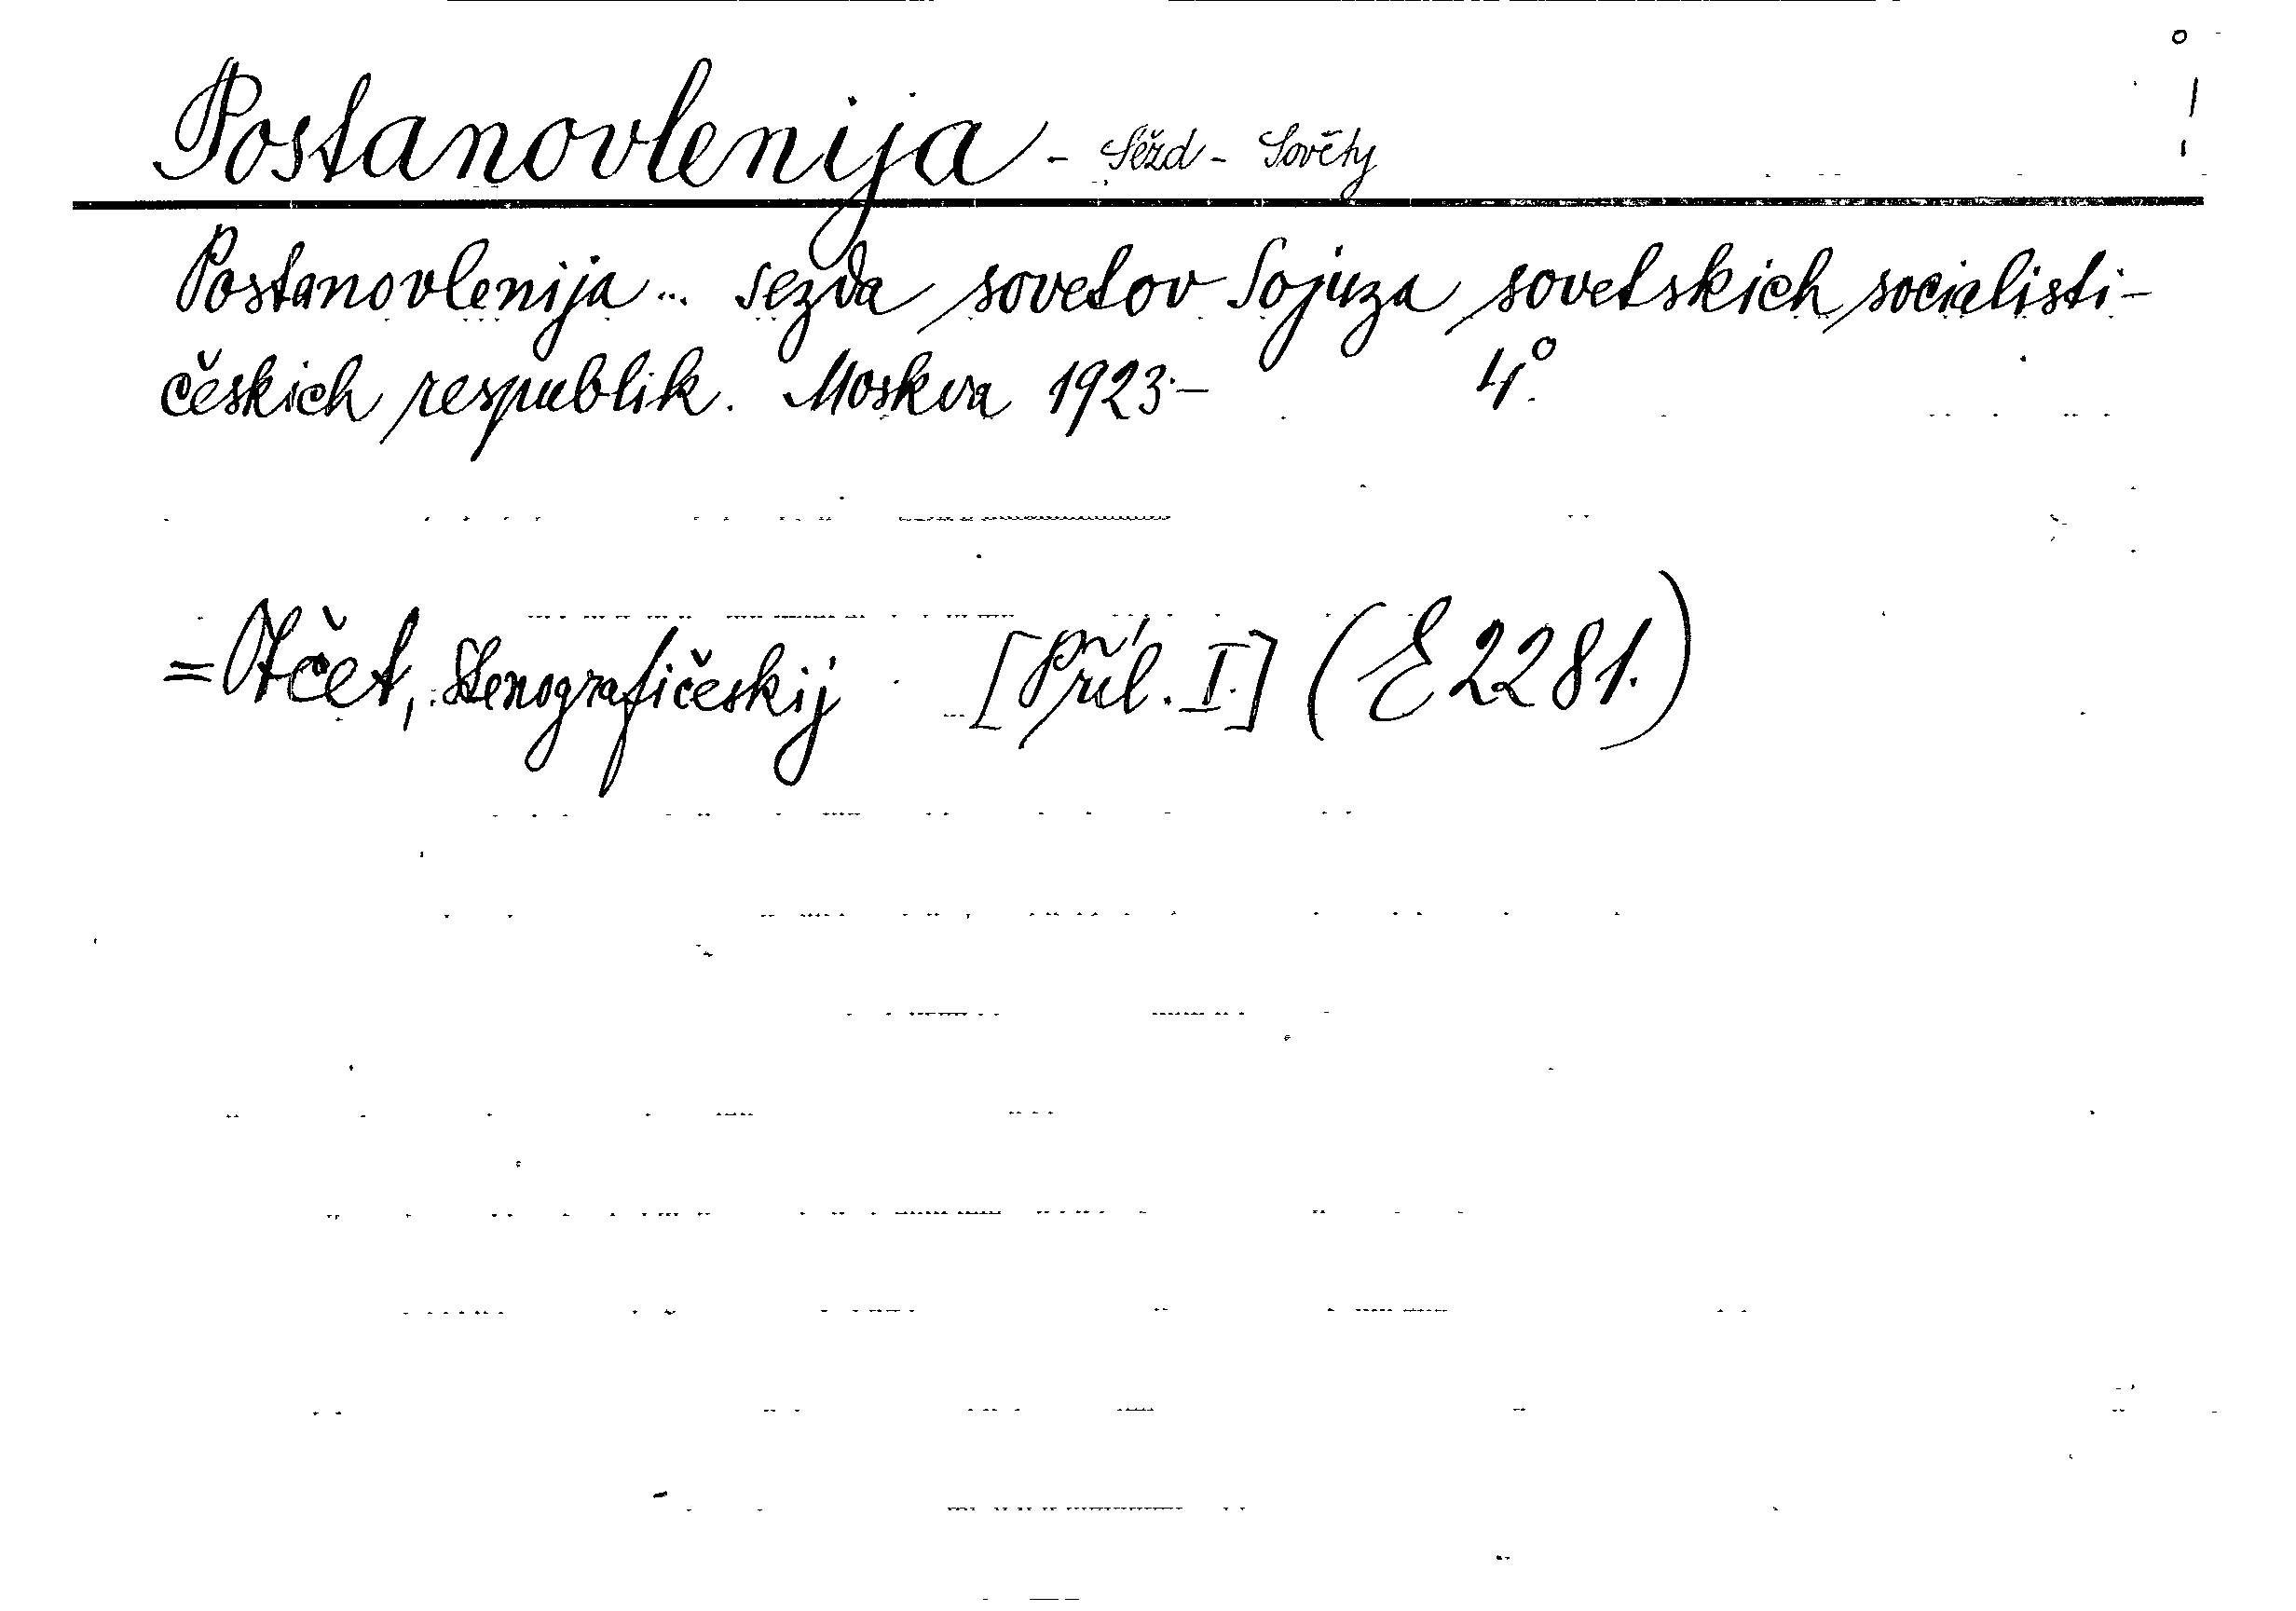 Postanovlenija - Sěžd - Sověty
Postanovlenija ... sezda sovetov Sojuza sovetskich socialisti-
českich respublik. Moskva 1923- 4°
= Otčet, Stenografičeskij [Příl. I.] (E 2281.)